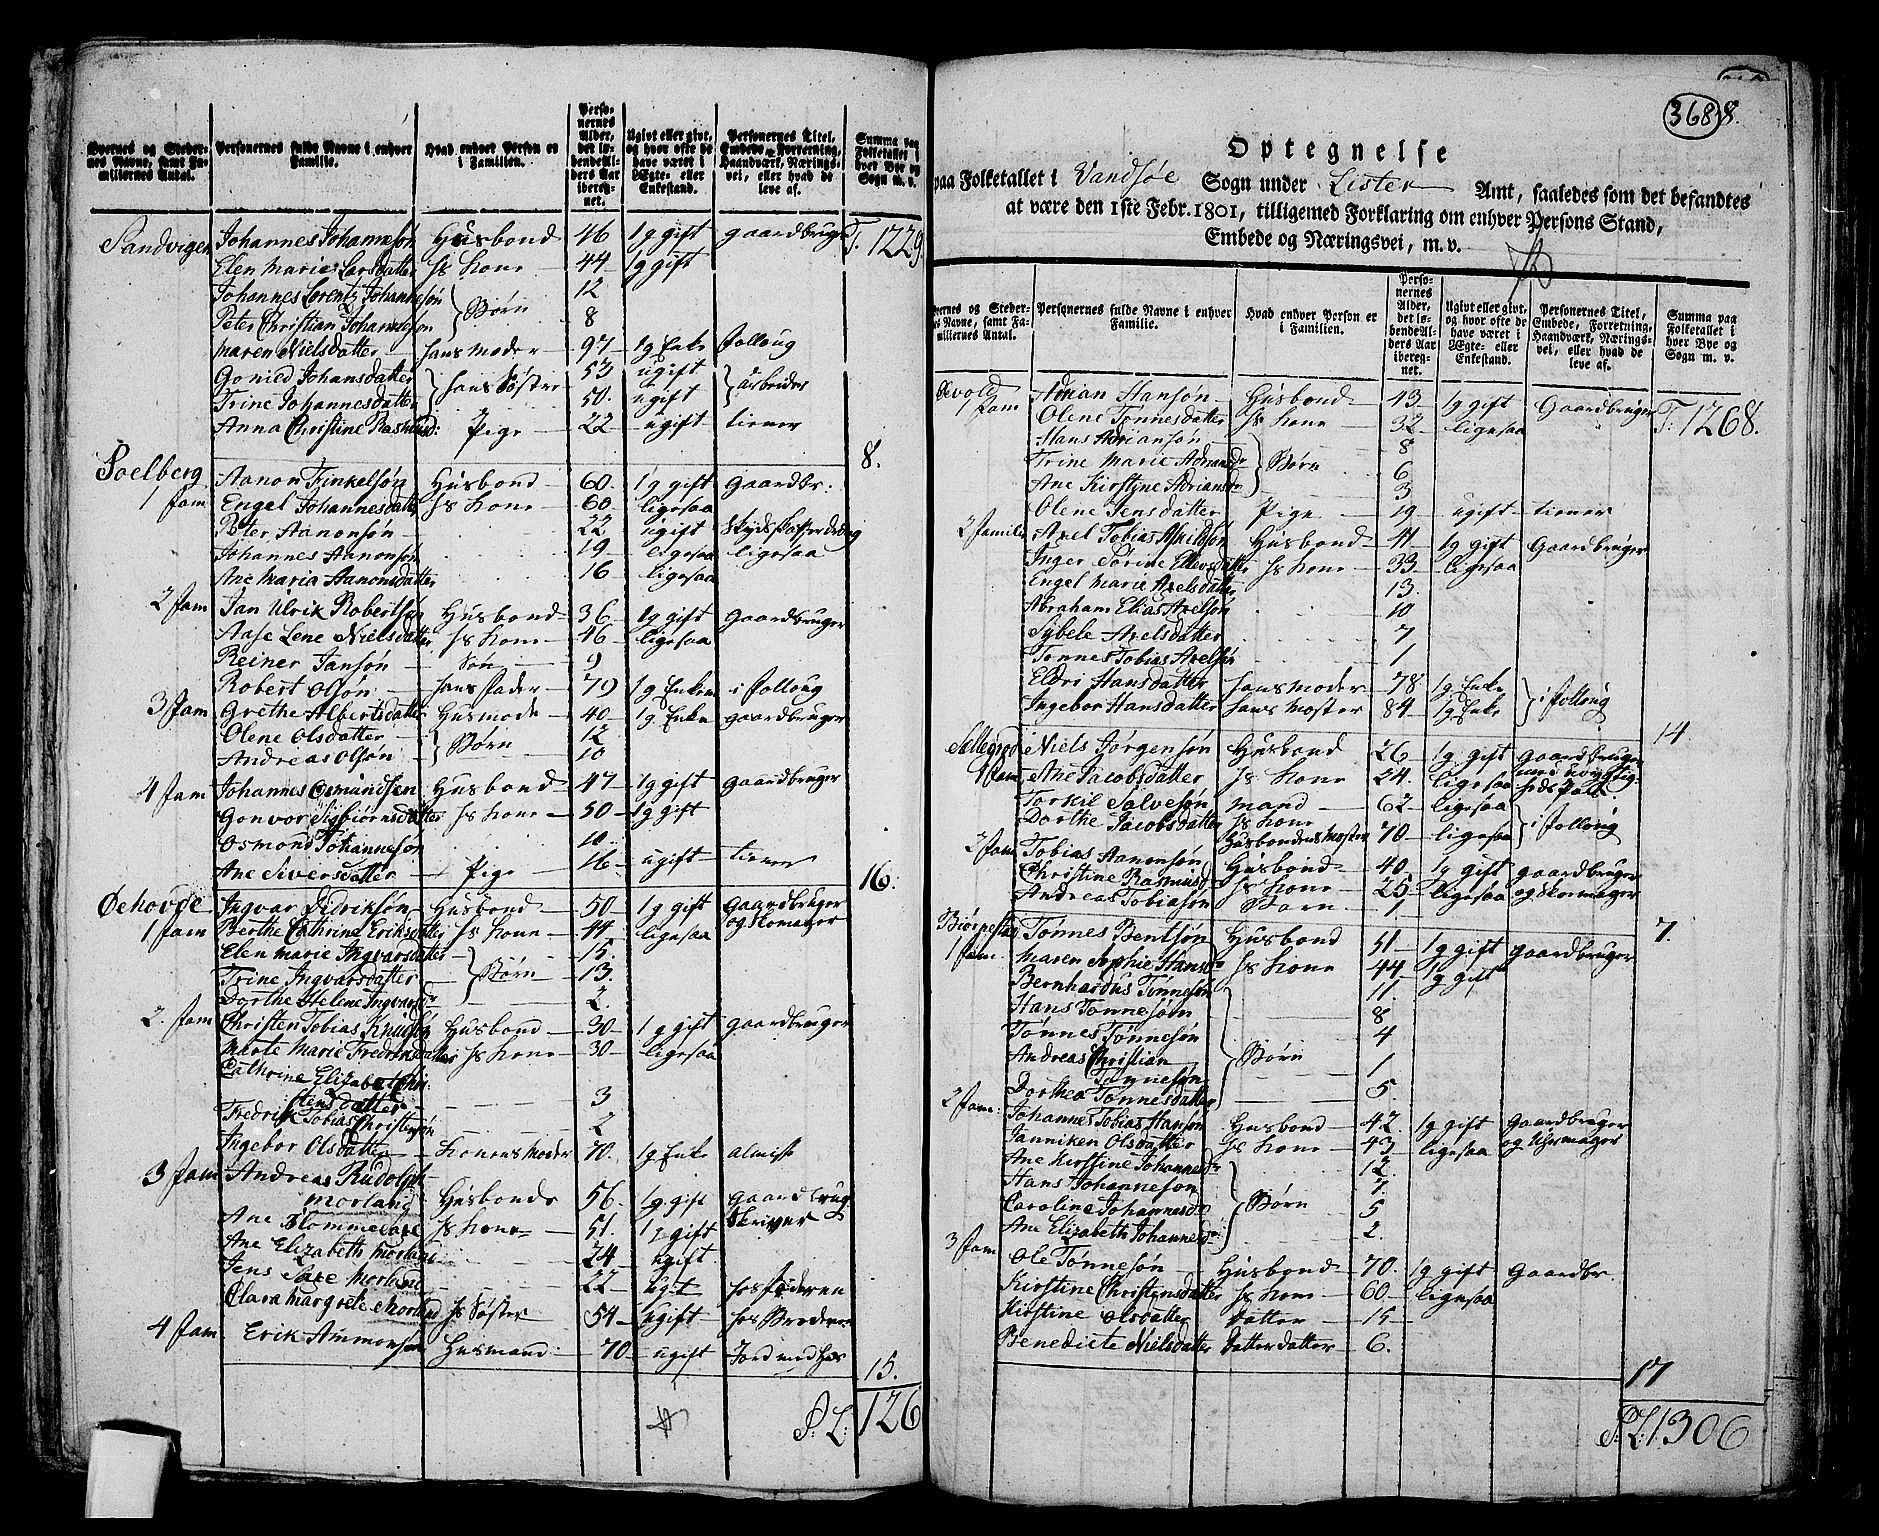 Byernes og Steder-
nes Navne, samt Fa-
miliernes Antal.
Personernes fulde Navne i enhver
Familie.
Hvad enhver Person er
i Familien.
Perso-
nernes
Alder,
det lø-
bende Al-
ders Aar
ibereg-
net.
Ugivt eller givt,
og hvor ofte de
have været i
Ægte- eller
Enkestand.
Personernes Titel,
Embede, Forretning,
Haandværk, Nærings-
vei, eller hvad de
leve af.
Summa paa
Folketallet i
hver Bye og
Sogn m. v.
Sandvigen Johannes Johannesøn Husbond 46 1g gift gaardbruger T. 1229
Elen Maria Larsdatter hs Kone 44 1g gift
Johannes Lorentz Johannesøn } Børn 12
Peter Christian Johannesøn 8
Maren Nielsdatter hans Moder 97 1g Enke Follaug
Gonild Johansdatter } hans Søster 53 ugift } arbeider
Trine Johannesdatter 50. ugift
Anna Christine Rasmusd: Pige 22 ugift tiener
8.
Soelberg Aanon Finkelsøn Husbond 60. 1g gift Gaardbr:
1 Fam Engel Johannesdatter hs Kone 60 ligesaa
Peter Aanonsøn 22 ugift
Johannes Aanonsøn 19 ligesaa ligesaa
Ane Maria Aanonsdatter 16 ligesaa
2 Fam Jan Ulrik Robertsøn Husbond 36 1g gift Gaardbruger
Aase Lene Nielsdatter hs Kone 46 ligesaa
Reiner Jansøn Søn 9
Robert Olsøn hans Fader 79 1g Enkem i Follaug
3 Fam Grethe Albertsdatter Husmode 40 1g Enke gaardbruger
Olene Olsdatter } Børn 12
Andreas Olsøn 10
4 Fam Johannes Osmundsen Husbond 47 1g gift gaardbruger
Gonvor Sigbiørnsdatter hs Kone 50 1g gift
Osmond Johannesøn 10.
Ane Siversdatter Pige 16 ugift tiener
16.
Øehovde Ingvar Didriksøn Husbond 50 1g gift Gaardbruger
1 Fam Berthe Cathrine Eriksdatter hs Kone 44 ligesaa og skomager
Elen Marie Ingvarsdatter 15.
Trine Ingvarsdatter } Børn 13.
Dorthe Helene Ingvarsdr 2.
2. Fam Christen Tobias Knudsøn Husbond 30 1g gift gaardbruger
Marte Marie Fredriksdatter hs Kone 30 ligesaa
Cathrine Elizabet Chri
stensdatter 3
Fredrik Tobias Christensøn 2
Ingebor Olsdatter Konens Moder 70. 1g Enke almisse
3 Fam Andreas Rudolph
Morland Husbonde 56. 1g gift Gaardbrug
Ane hs Kone 51. 1g gift Skriver
Ane Elizabeth Morland 24 ugift
Jens Saxe Morland 22 ugt hos Faderen
Clara Margrete Morland hs Søster 54 ugift hos Broderen
4 Fam Erik Ammonsøn Husmand: 70 ugift Jord med hus
15.
126
368
Optegnelse
paa Folketallet i Vandsøe Sogn under Lister Amt, saaledes som det befandtes
at være den 1ste Febr. 1801, tilligemed Forklaring om enhver Persons Stand,
Embede og Næringsvei, m. v.
Byernes og Steder-
nes Navne, samt Fa-
miliernes Antal.
Personernes fulde Navne i enhver
Familie.
Hvad enhver Person er
i Familien.
Perso-
nernes
Alder,
det lø-
bende Al-
ders Aar
ibereg-
net.
Ugivt eller givt,
og hvor ofte de
have været i
Ægte- eller
Enkestand.
Personernes Titel,
Embede, Forretning,
Haandværk, Nærings-
vei, eller hvad de
leve af.
Summa paa
Folketallet i
hver Bye og
Sogn m. v.
Adrian Hansøn Husbond 43 1g gift Gaardbruger T: 1268.
1 Fam Olene Tønnesdatter hs Kone 32 ligesaa
Hans Adriansøn 8
Trine Marie Adriansdr } Børn 6
Ane Kirstine Adriansdr 3
Olene Jensdatter Pige 19 ugift tiener
2 Familie Axel Tobias Husbond 41 1g gift Gaardbruger
Inger Torine Ellevsdatter hs Kone 33 ligesaa
Engel Marie Axelsdatter 13.
Abraham Elias Axelsøn 10
Sybele Axelsdatter 7
Tønnes Tobias Axelsøn 1
Eldri Hansdatter hans Moder 78 1g Enke } i Follaug
Ingebor Hansdatter hans Moster 84 1g Enke
14
Niels Jørgensøn Husbond 26 1g gift Gaardbruger
1 Fam Ane Jacobsdatter hs Kone 24. ligesaa
Torkil Salvesøn Mand 62 ligesaa } i Follaug
Dorthe Jacobsdatter hs Kone
Husbondens Moster 70 ligesaa
2 Fam Tobias Aanonsøn Husbond 40 1g gift gaardbruger
Christine Rasmusd hs Kone 25 ligesaa og skomager
Andreas Tobiasøn Barn 1
7.
Biørnestad Tønnes Bentsøn Husbond 51 1g gift gaardbruger
1 Fam. Maren Sophie Hansd hs Kone 44 1g gift
Bernhardus Tønnesøn 11.
Hans Tønnesøn 8
Tønnes Tønnesøn 4
Andreas Christian } Børn 1
Tønnesøn
Dorthea Tønnesdatter 5.
2 Fam: Johannes Tobias Hansøn Husbond 42. 1g gift gaardbruger
Janniken Olsdatter hs Kone 43 ligesaa og Uhrmager
Ane Kirstine Johannesdr 12
Hans Johannesøn 7.
Caroline Johannesd } Børn 5
Ane Elizabeth Johannesdr 2.
3 Fam Ole Tønnesøn Husbond 70. 1g gift gaardbr.
Kirstine Christensdatter hs Kone 60 ligesaa
Kirstine Olsdatter Datter 15
Benedicte Nielsdatter Datterdatter 6.
17
1306